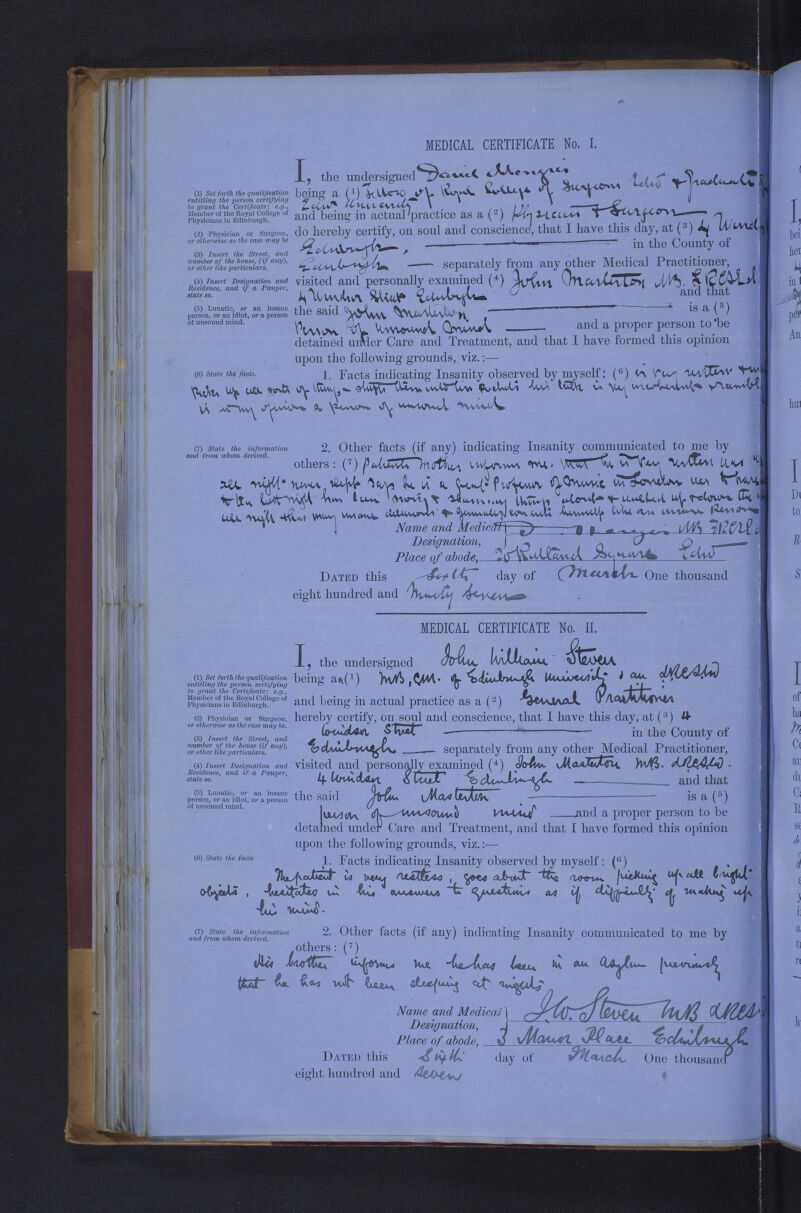 MEDICAL CERTIFICATE No. I.
I, the undersigned Daniel Menzies
(1) Set forth the qualification entitling the person certifying to grant the Certificate: e.g., Member of the Royal College of Physicians in Edinburgh.
being a (1) Fellow of Royal College of Surgeons Edinr & Graduate of
Edinr University
and being in actual practice as a (2) Physician & Surgeon
(2) Physician or Surgeon, or otherwise as the case may be
do hereby certify, on soul and conscience, that I have this day, at (3) 4
Edinburgh, in the County of
(3) Insert the Street, and number of the house, (if any), or other like particulars.
Edinburgh separately from any other Medical Practitioner,
(4) Insert Designation and Residence, and if a Pauper, state so.
visited and personally examined (4) John Masterton MB.
4 Windsor Street Edinburgh and that
(5) Lunatic, or an insane person, or an idiot, or a person of unsound mind.
the said John Masterton is a (5)
Person of Unsound Mind and a proper person to be
detained under Care and Treatment, and that I have formed this opinion
upon the following grounds, viz.:—
(6) State the facts.
1. Facts indicating Insanity observed by myself: (6) is very restless
Picks up all sorts of things stuffs them into his pockets his talk is very incoherent
is in my opinion a person of unsound mind
(7) State the information and from whom derived.
2. Other facts (if any) indicating Insanity communicated to me by
others: (7) Patients Mother informs me that he is very restless
all night never sleeps says he is a great Professor of Music in London
last night has been noisy & slamming things about & up & down the
all night thus many insane & generally conducts himself like an insane Person
Name and Medical Designation, D Menzies MB
Place of abode, 20 Rutland Square Edinr
DATED this Sixth day of March One thousand
eight hundred and Ninety Seven
MEDICAL CERTIFICATE No. II.
I, the undersigned John William Steven
(1) Set forth the qualification entitling the person certifying to grant the Certificate: e.g., Member of the Royal College of Physicians in Edinburgh.
being an (1) MB, CM. of Edinburgh University & an LRCSEd
and being in actual practice as a (2) General Practitioner
(2) Physician or Surgeon, or otherwise as the case may be.
hereby certify, on soul and conscience, that I have this day, at (3) 4
Windsor Street in the County of
(3) Insert the Street, and number of the house (if any), or other like particulars.
Edinburgh separately from any other Medical Practitioner,
(4) Insert Designation and Residence, and if a Pauper, state so.
visited and personally examined (4) John Masterton MB. LRCSEd.
4 Windsor Street Edinburgh and that
(5) Lunatic, or an insane person, or an idiot, or a person of unsound mind.
the said John Masterton is a (5)
person of unsound mind and a proper person to be
detained under Care and Treatment, and that I have formed this opinion
upon the following grounds, viz.:—
(6) State the facts
1. Facts indicating Insanity observed by myself: (6)
The patient is very restless, goes about the room picking up all bright
objects, hesitates in his answers to questions as if difficulty of making up
his mind.
(7) State the information and from whom derived.
2. Other facts (if any) indicating Insanity communicated to me by
others: (7)
His brother informs me he has been in an Asylum previously
that he has not been sleeping at nights
Name and Medical Designation, J.W. Steven MB LRCSEd
Place of abode, 3 Manor Place Edinburgh
DATED this Sixth day of March One thousand
eight hundred and Seven